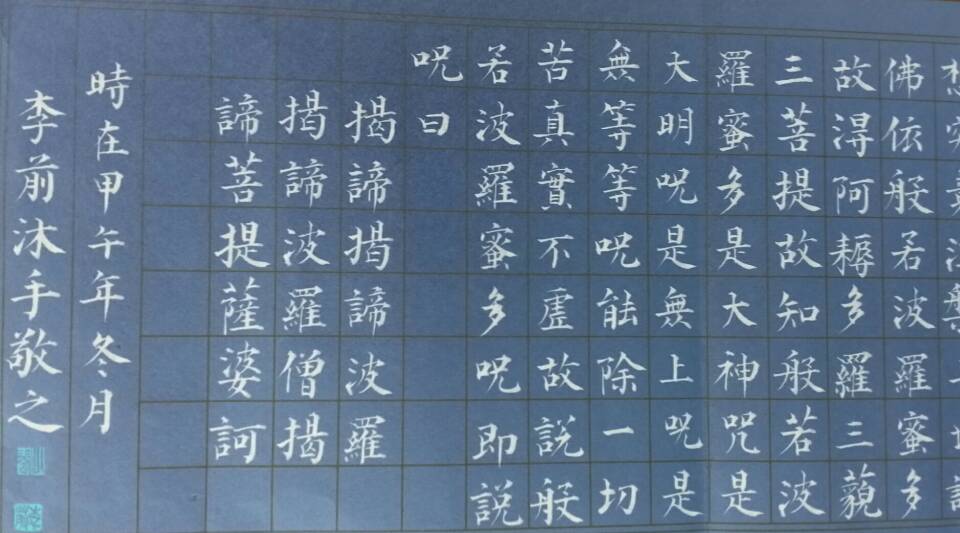 佛依般若波羅蜜多
故淂阿耨多羅三藐
三菩提故知般若波
羅蜜多是大神咒是
大明呪是無上呪是
無等等呪能除一切
苦真實不虛故說般
若波羅蜜多呪即說
呪曰
揭諦揭諦波羅
揭諦波羅僧揭
諦菩提薩婆訶
時在甲午年冬月
李前沐手敬之